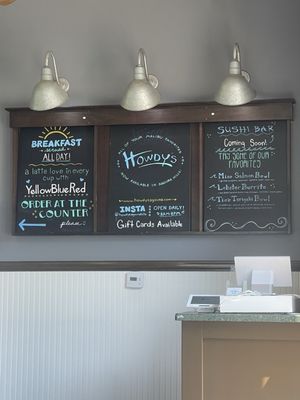 BREAKFAST
served
ALL DAY!
a little love in every
cup with
YellowBlueRed
ORDER AT THE
COUNTER
please
Howdy's
NOW AVAILABLE
www.howdysgoma.com
INSTA
OPEN DAILY!
Gift Cards Available
SUSHI BAR
Coming Soon...
TRY SOME OF OUR
FAVORITES
Miso Salmon Bowl
Lobster Burrito
Tuna Teriyaki Bowl